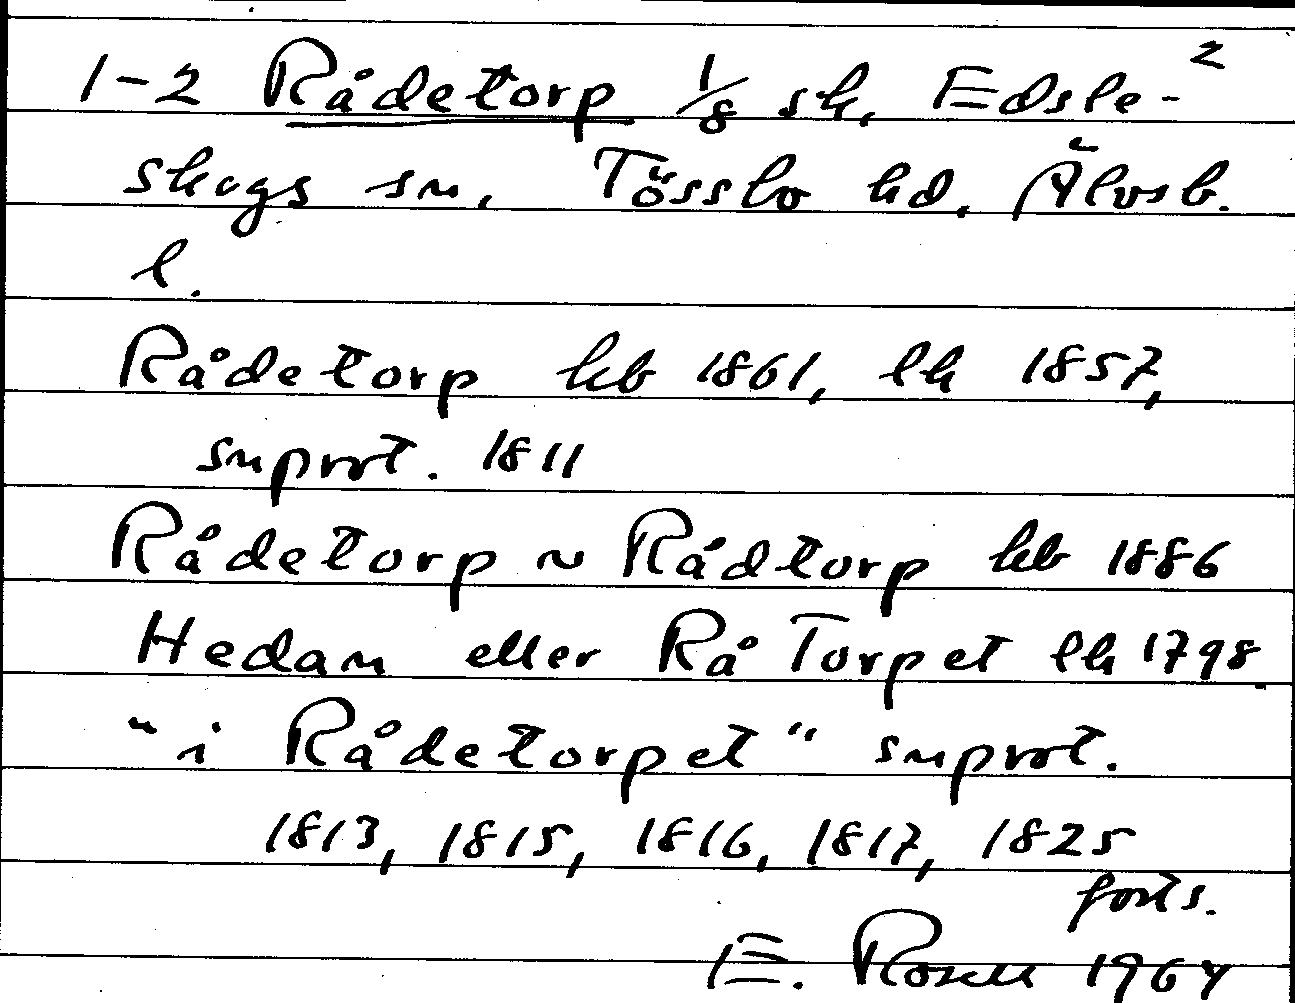 2
1-2 Rådetorp 1/8 sk, Edsle-
skogs sn, Tössbo hd, Älvsb.
l.
Rådetorp kb 1861, lh 1857,
snprot. 1811
Rådetorp ~ Rådtorp kb 1886
Hedan eller Rå Torpet lh 1798
"i Rådetorpet" snprot.
1813, 1815, 1816, 1817, 1825
forts.
E. Rosell 1964